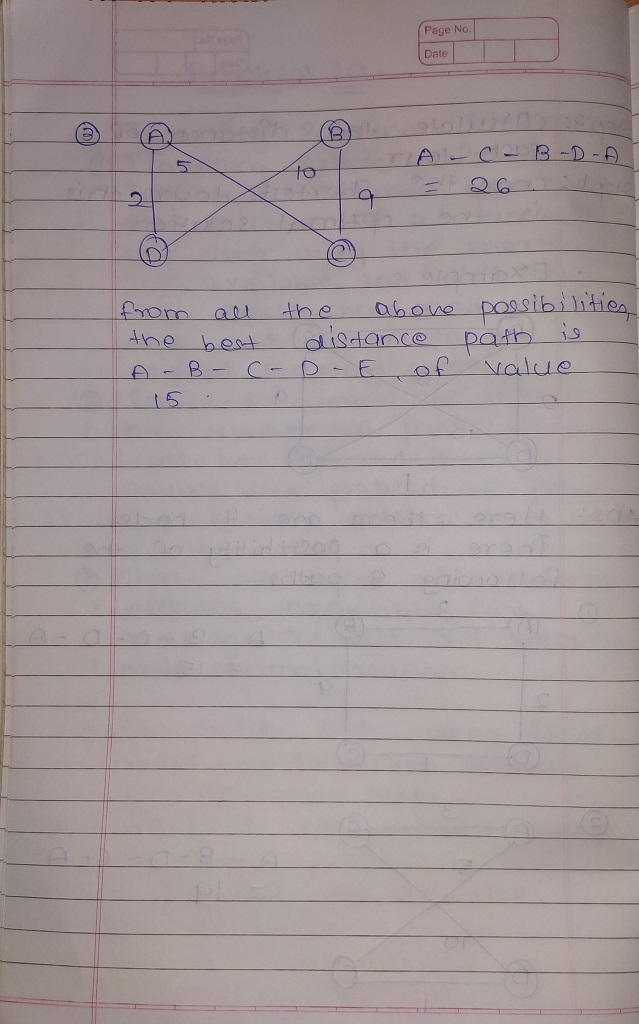 Page No.
Date
③ A B
5 10 A - C - B - D - A
2 9 = 26.
D C
from all the above possibilities,
the best distance path is
A - B - C - D - E, of value
15.